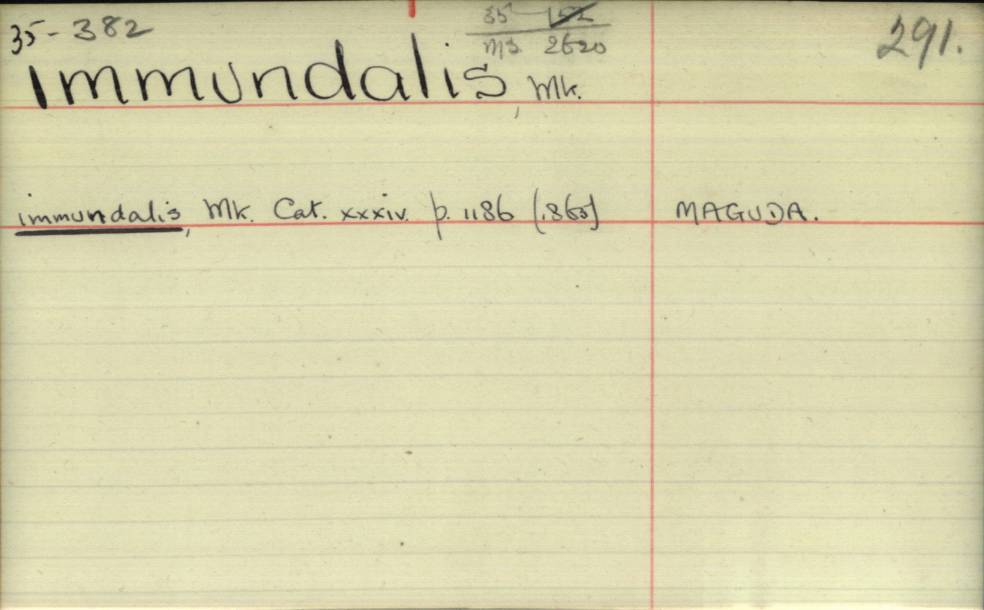 35-382
35 152
MS 2620
291.
immundalis, Mk.
immundalis, Mk. Cat. xxxiv. p. 1186 (1865) MAGUDA.